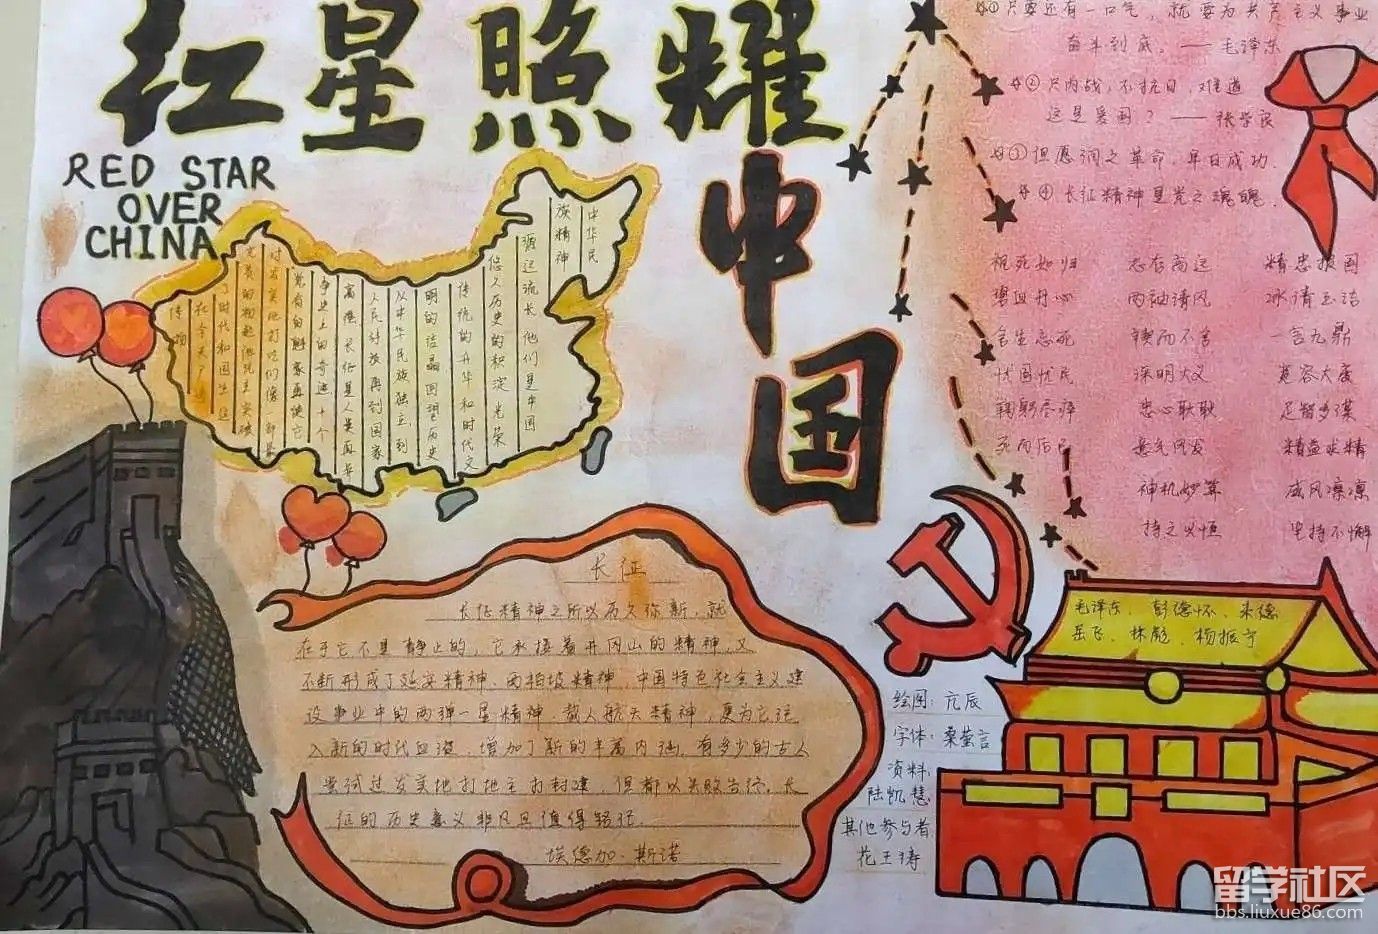 红星照耀
中国
RED STAR
OVER
CHINA
①只要还有一口气，就要为共产主义事业
奋斗到底。——毛泽东
②只内战，不抗日，难道
这是爱国？——张学良
③但愿润之革命，早日成功.
④长征精神是党之瑰魄.
视死如归 志存高远 精忠报国
碧血丹心 两袖清风 冰清玉洁
舍生忘死 锲而不舍 一言九鼎
忧国忧民 深明大义 宽容大度
鞠躬尽瘁 忠心耿耿 足智多谋
死而后已 意气风发 精益求精
神机妙算 威风凛凛
持之以恒 坚持不懈
中华民
族精神
源远流长 他们是中国
悠久历史的积淀 光荣
传统的升华和时代文
明的结晶 回望历史
从中华民族独立到
人民解放再到国家
富强 长征是人类再
争史上的奇迹 十个
长征
长征精神之所以历久弥新，就
在于它不是静止的，它承接着井冈山的精神，又
不断形成了延安精神、西柏坡精神，中国特色社会主义建
设事业中的两弹一星精神，载人航天精神，更为它注
入新的时代血液，增加了新的丰富内涵，有多少的古人
尝试过发实地打地主打封建，但都以失败告终。长
征的历史意义非凡且值得铭记。
埃德加·斯诺
毛泽东、彭德怀、朱德
岳飞、林彪、杨振宁
绘图：亢辰
字体：桑萤言
资料：
陆凯慧
其他参与者
花王涛
留学社区
bbs.liuxue86.com